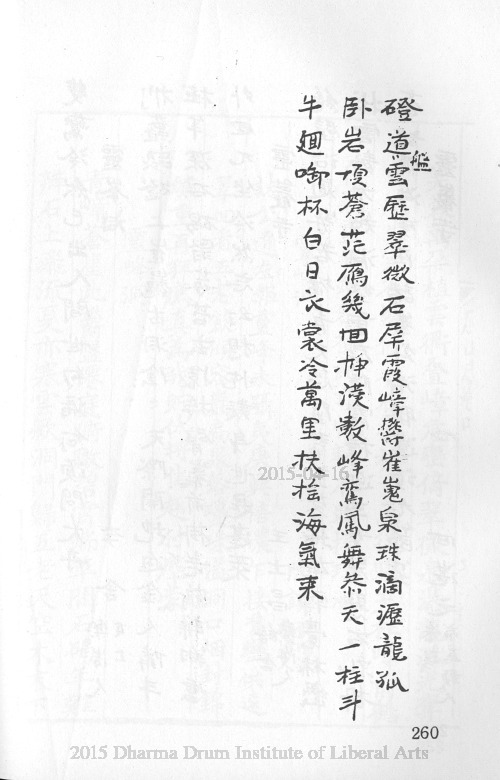 磴道盤雲歷翠微石屏霞嶂鬱崔嵬泉珠滴瀝龍孤
卧岩頂蒼茫鴈幾囬挿漢數峰鸞鳳舞叅天一柱斗
牛廻啣杯白日衣裳冷萬里扶桧海氣来
2015-04-16
260
2015 Dharma Drum Institute of Liberal Arts